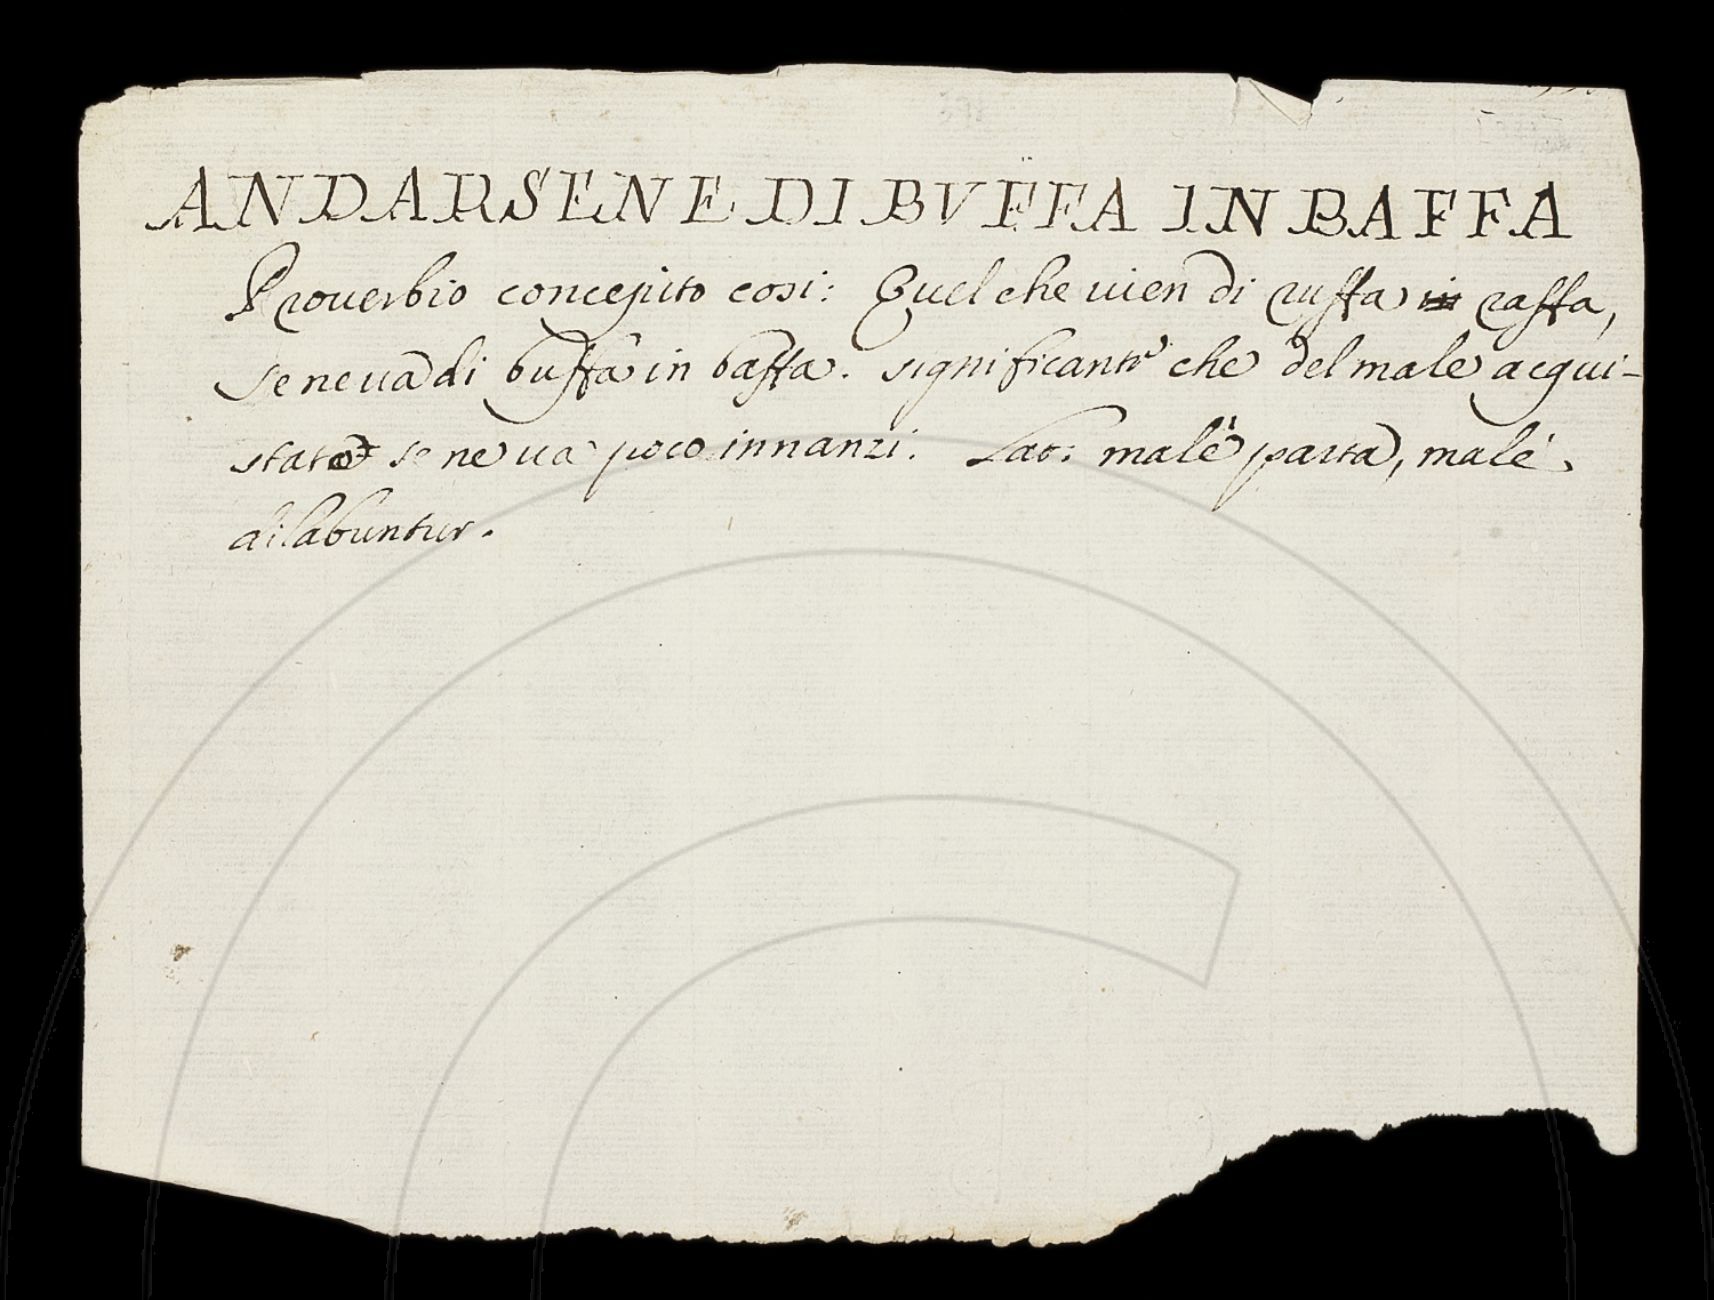 ANDARSENE DI BVFFA IN BAFFA
Prouerbio conceputo cosi: Quel che uien di ruffa raffa,
se ne ua di buffa in baffa. significante che del male acqui-
stato se ne ua poco innanzi. Lat: malè parta, malè
dilabuntur.